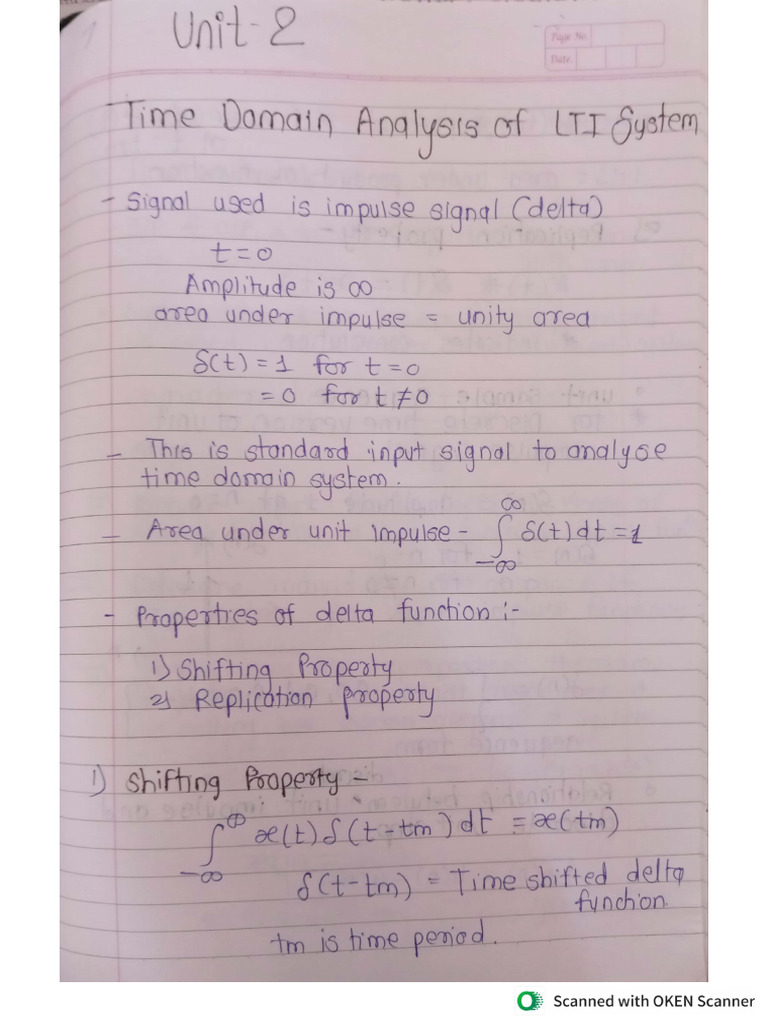 Unit-2
Page No.
Date
Time Domain Analysis of LTI System
- Signal used is impulse signal (delta)
t=0
Amplitude is ∞
area under impulse = unity area
δ(t) = 1 for t=0
= 0 for t≠0
- This is standard input signal to analyse
time domain system.
- Area under unit impulse - ∫_{-∞}^{∞} δ(t)dt = 1
- Properties of delta function :-
1) Shifting Property
2) Replication property
1) Shifting Property -
∫_{-∞}^{∞} x(t) δ(t-tm) dt = x(tm)
δ(t-tm) = Time shifted delta
function.
tm is time period.
Scanned with OKEN Scanner